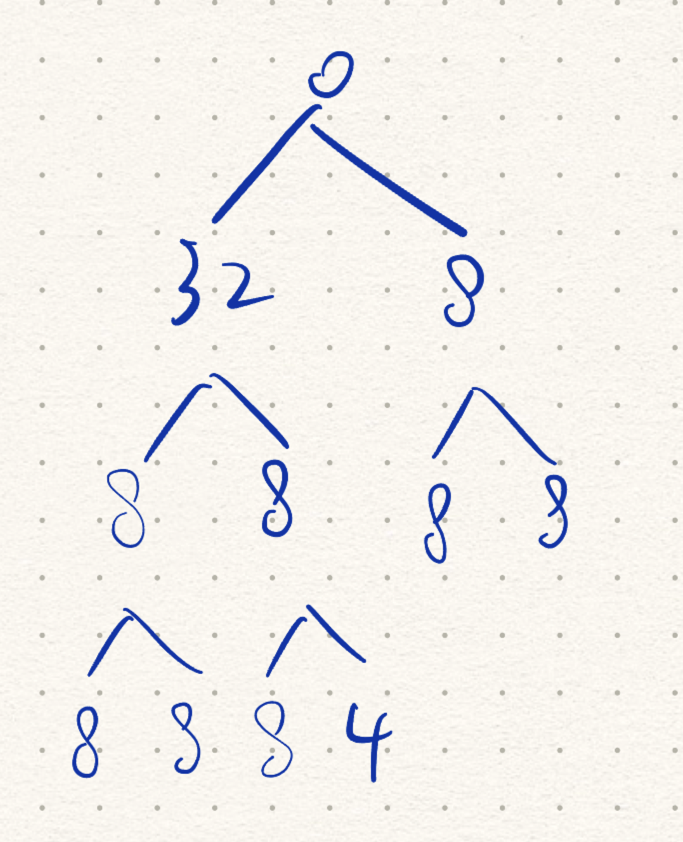 0
32 8
8 8 8 8
8 8 8 4